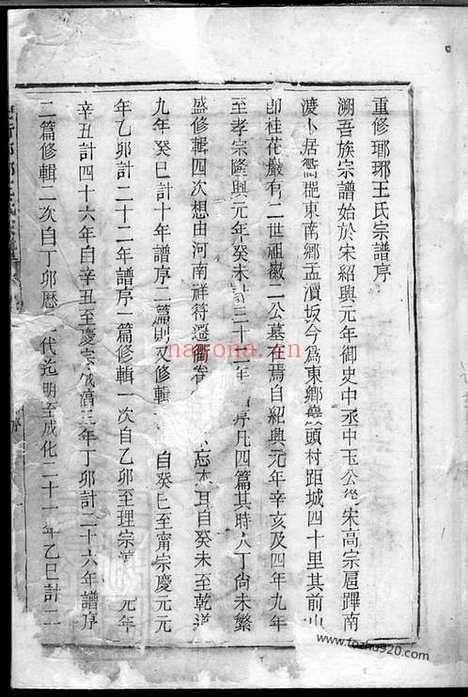 重修瑯琊王氏宗譜序
溯吾族宗譜始於宋紹興元年御史中丞中玉公從宋高宗扈蹕南
渡卜居衢郡東南鄉孟瀆坂今爲東鄉 頭村距城四十里其前山
卽桂花嚴有二世祖徽二公墓在焉自紹興元年辛亥及四年九年
至孝宗隆興元年癸未計三十三年 序凡四篇其時人丁尙未繁
盛修輯四次想由河南祥符遷衢 忘本耳自癸未至乾道
九年癸巳計十年譜序二篇則又修輯 自癸巳至甯宗慶元元
年乙卯計二十二年譜序一篇修輯一次自乙卯至理宗 元年
辛丑計四十六年自辛丑至慶宗咸淳三年丁卯計二十六年譜序
二篇修輯二次自丁卯歷 代迄明至成化二十一年乙巳計二
nayona.cn
www.fozhu920.com